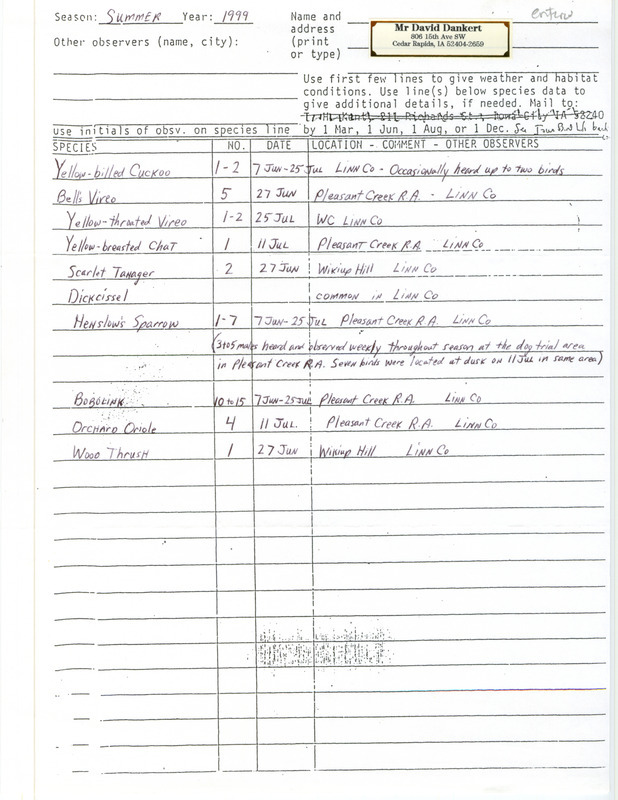 Season: Summer Year: 1999
Name and address (print or type)
Mr David Dankert
806 15th Ave SW
Cedar Rapids, IA 52404-2659
Other observers (name, city):
Use first few lines to give weather and habitat
conditions. Use line(s) below species data to
give additional details, if needed. Mail to:
use initials of obsv. on species line by 1 Mar, 1 Jun, 1 Aug, or 1 Dec. See
SPECIES NO. DATE LOCATION - COMMENT - OTHER OBSERVERS
Yellow-billed Cuckoo 1-2 7 Jun-25 Jul Linn Co - Occasionally heard up to two birds
Bell's Vireo 5 27 Jun Pleasant Creek R.A. - Linn Co
Yellow-throated Vireo 1-2 25 Jul WC Linn Co
Yellow-breasted Chat 1 11 Jul Pleasant Creek R.A. Linn Co
Scarlet Tanager 2 27 Jun Wikiup Hill Linn Co
Dickcissel common in Linn Co
Henslow's Sparrow 1-7 7 Jun-25 Jul Pleasant Creek R.A. Linn Co
(3 to 5 males heard and observed weekly throughout season at the dog trial area
in Pleasant Creek R.A. Seven birds were located at dusk on 11 Jul in same area)
Bobolink 10 to 15 7 Jun-25 Jul Pleasant Creek R.A. Linn Co
Orchard Oriole 4 11 Jul. Pleasant Creek R.A. Linn Co
Wood Thrush 1 27 Jun Wikiup Hill Linn Co